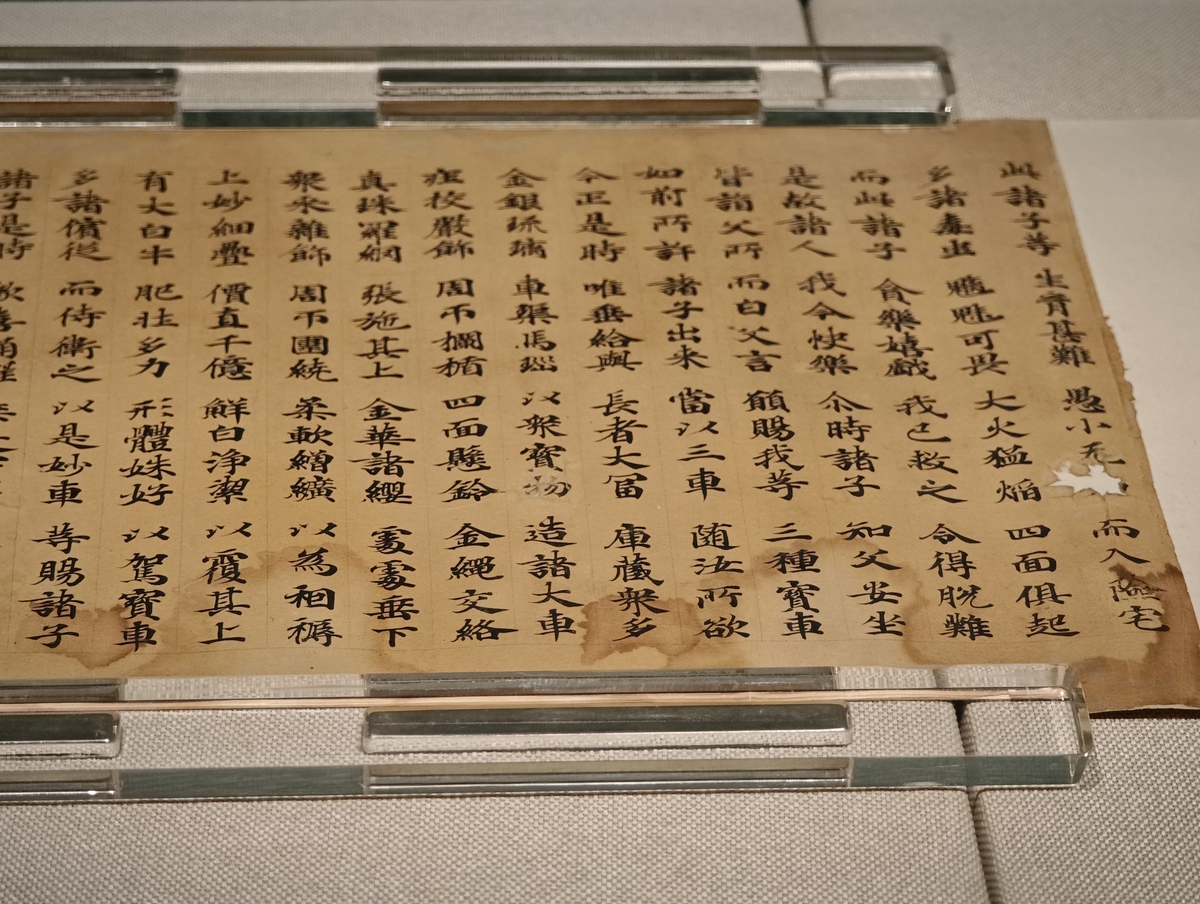 此諸子等 生育甚難 愚小无 而入險宅
多諸毒虫 魑魅可畏 大火猛焰 四面俱起
而此諸子 貪樂嬉戲 我已救之 令得脫難
是故諸人 我今快樂 尒時諸子 知父安坐
皆詣父所 而白父言 願賜我等 三種寶車
如前所許 諸子出來 當以三車 随汝所欲
今正是時 唯垂給與 長者大富 庫藏衆多
金銀琉璃 車渠馬瑙 以衆寶物 造諸大車
莊挍嚴飾 周帀欄楯 四面懸鈴 金繩交絡
真珠羅網 張施其上 金華諸纓 處處垂下
衆綵雜飾 周帀圍繞 柔軟繒纊 以為裀褥
上妙細疊 價直千億 鮮白淨潔 以覆其上
有大白牛 肥壯多力 形體姝好 以駕寶車
多諸儐從 而侍衛之 以是妙車 等賜諸子
諸子是時